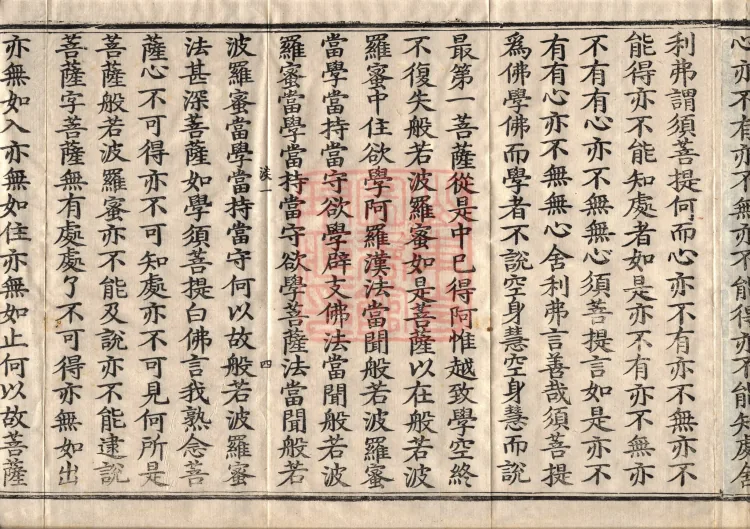 心亦不有亦不無亦不能得亦不能知處舍
利弗謂須菩提何而心亦不有亦不無亦不
能得亦不能知處者如是亦不有亦不無亦
不有有心亦不無無心須菩提言如是亦不
有有心亦不無無心舍利弗言善哉須菩提
為佛學佛而學者不說空身慧空身慧而說
最第一菩薩從是中已得阿惟越致學空終
不復失般若波羅蜜如是菩薩以在般若波
羅蜜中住欲學阿羅漢法當聞般若波羅蜜
當學當持當守欲學辟支佛法當聞般若波
羅蜜當學當持當守欲學菩薩法當聞般若
四
波羅蜜當學當持當守何以故般若波羅蜜
法甚深菩薩如學須菩提白佛言我熟念菩
薩心不可得亦不可知處亦不可見何所是
菩薩般若波羅蜜亦不能及說亦不能逮說
菩薩字菩薩無有處處了不可得亦無如出
亦無如入亦無如住亦無如止何以故菩薩